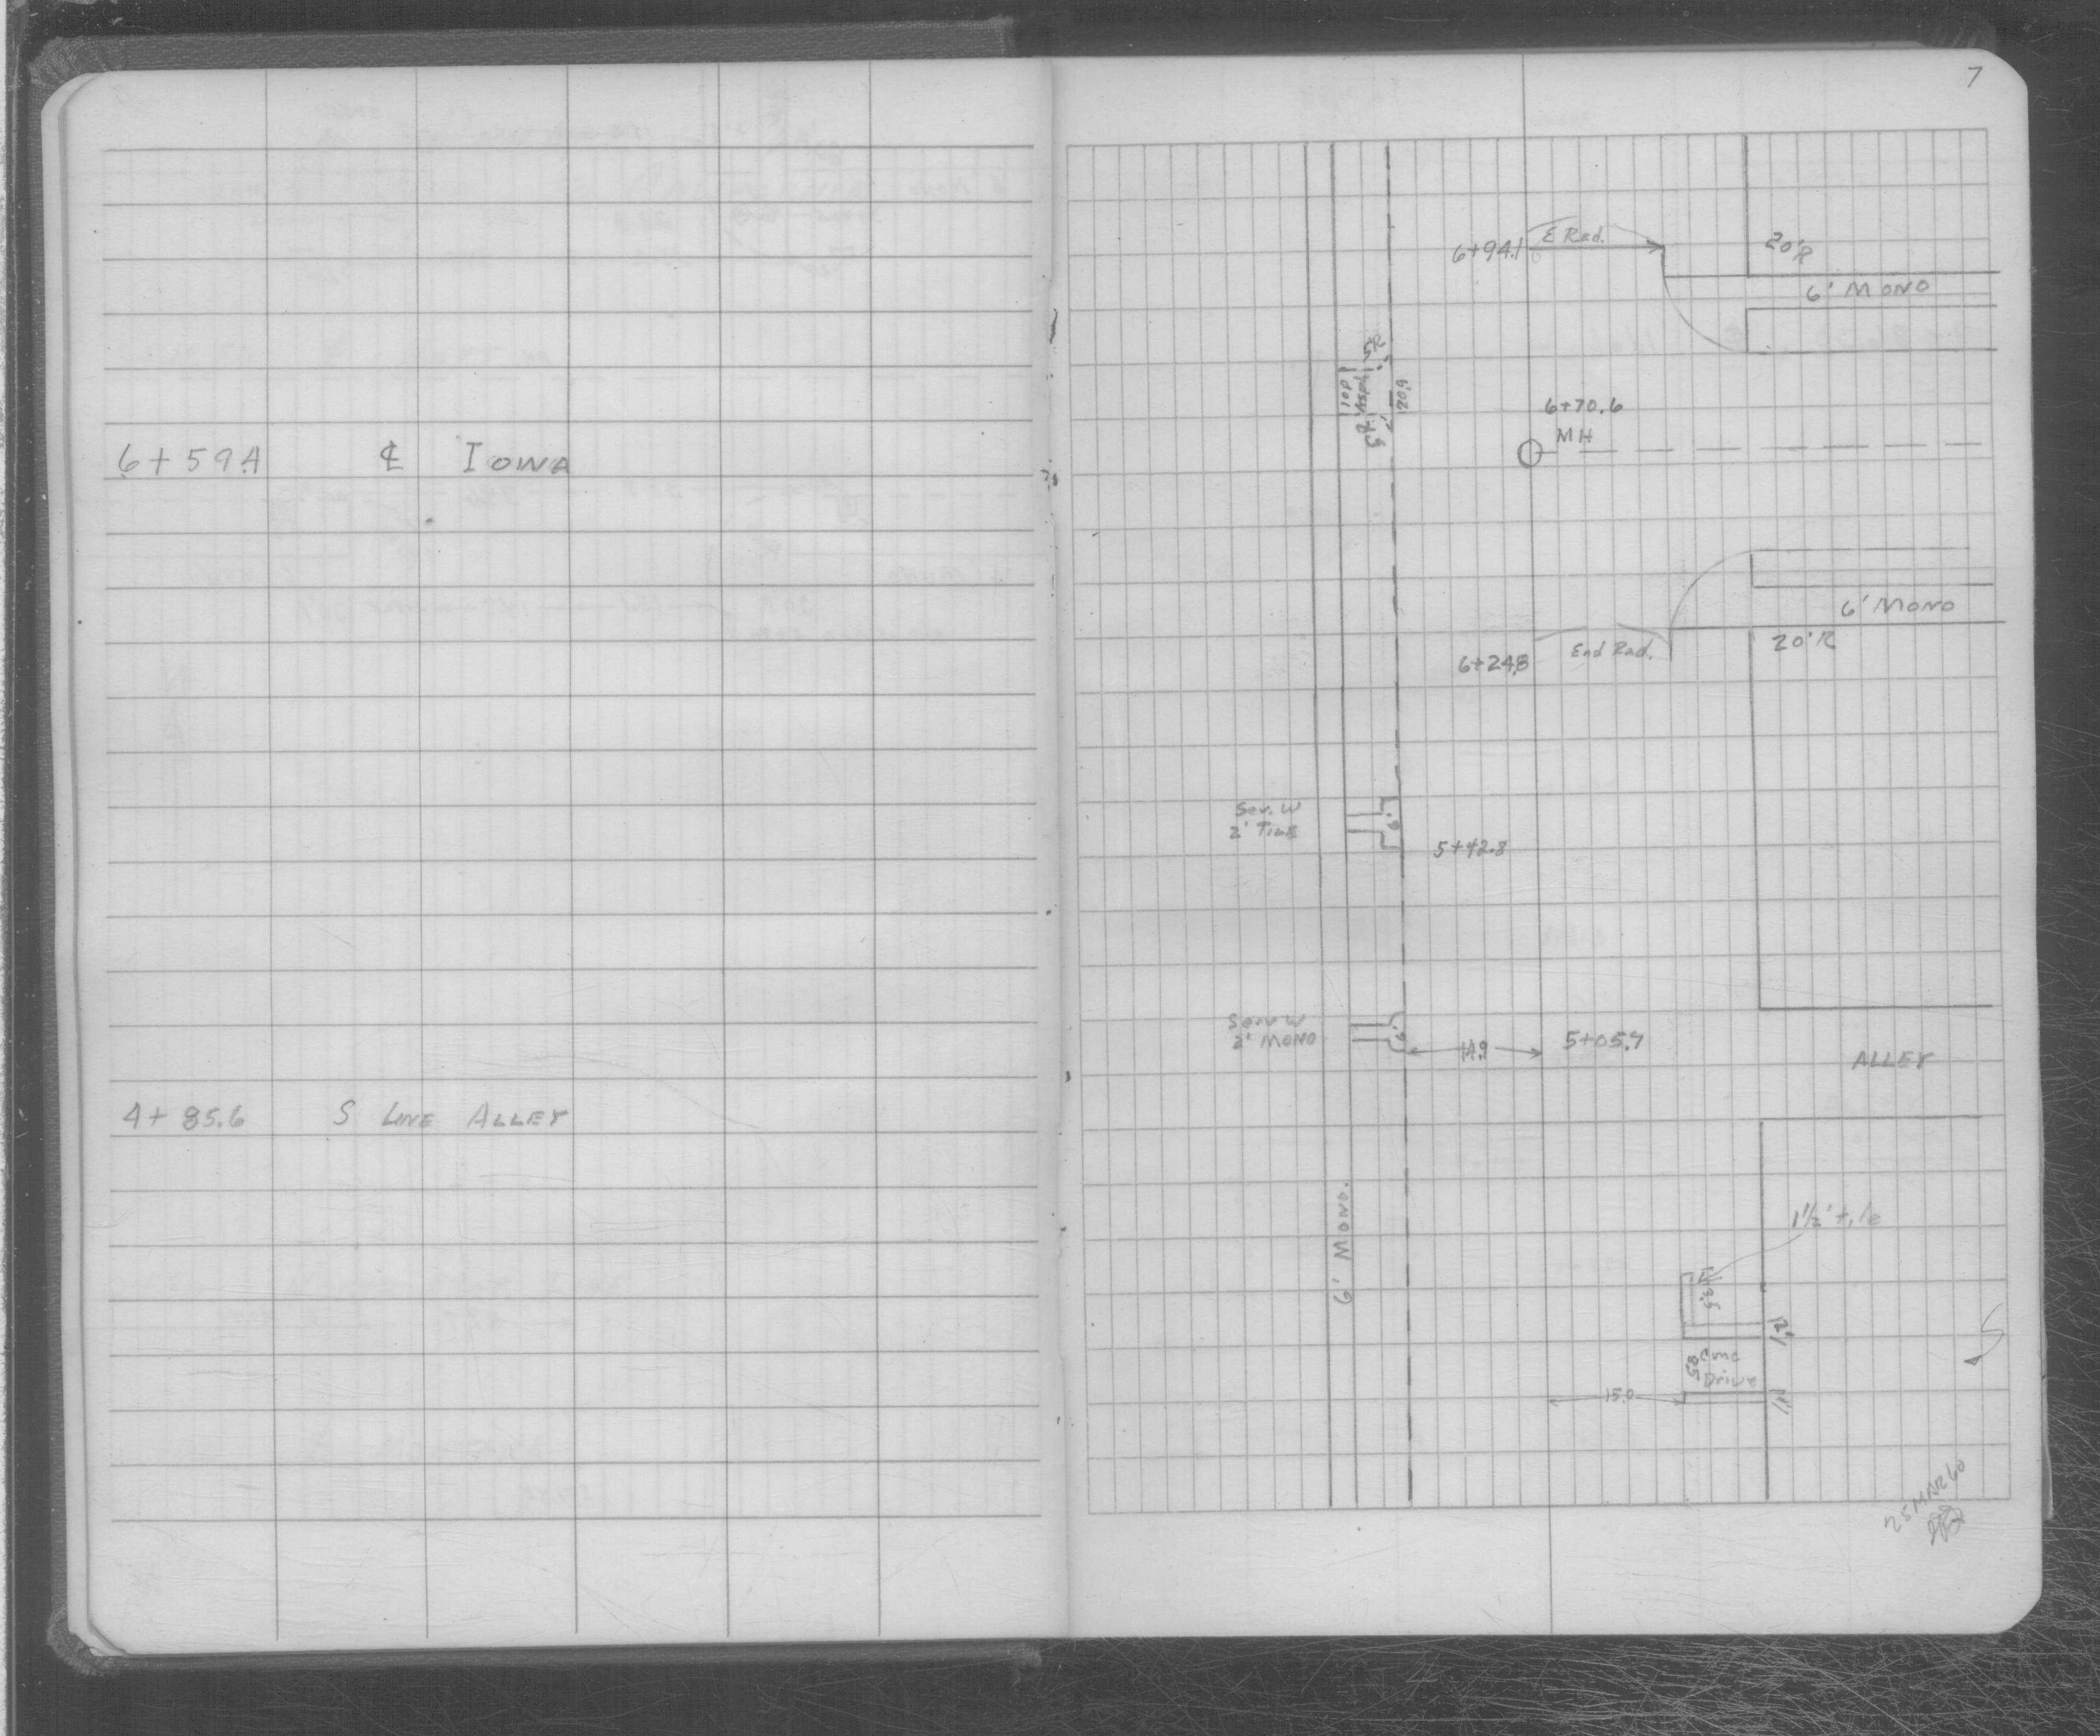 7
6+59.4 ℄ IOWA
4+85.6 S LINE ALLEY
6+94.1 E Rad.
20'R
6' MONO
6+70.6
MH
6' MONO
20'R
6+24.8 End Rad.
Serv. W
5+42.8
Serv W
2' MONO
14.9 5+05.7
ALLEY
6' MONO.
1½' tile
3.5
Conc
Drive
8.5
15.0
25 MAR 60